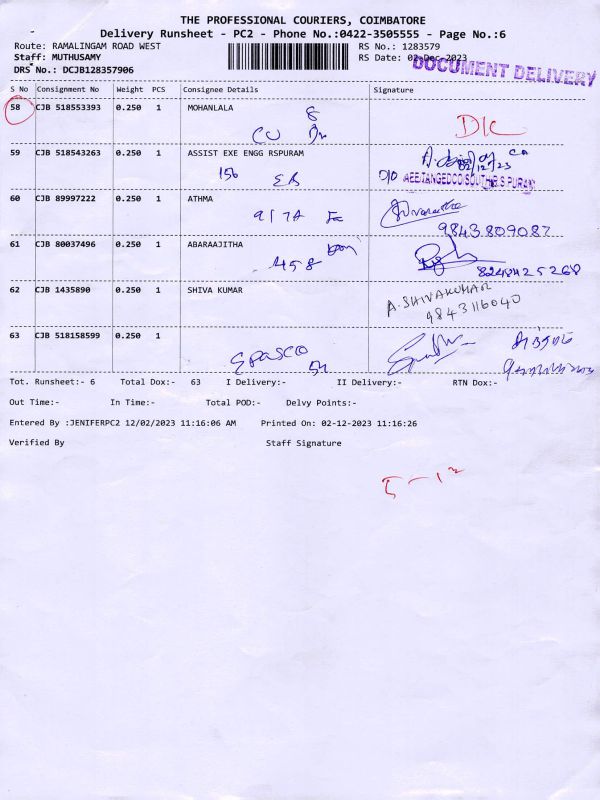 THE PROFESSIONAL COURIERS, COIMBATORE
Delivery Runsheet - PC2 - Phone No.:0422-3505555 - Page No.:6
Route: RAMALINGAM ROAD WEST RS No.: 1283579
Staff: MUTHUSAMY RS Date: 02-Dec-2023
DOCUMENT DELIVERY
DRS No.: DCJB128357906
S No Consignment No Weight PCS Consignee Details Signature
58 CJB 518553393 0.250 1 MOHANLALA
8
D/C
59 CJB 518543263 0.250 1 ASSIST EXE ENGG RSPURAM
156 EB
02/12/23
D/O AEE/TANGEDCO/SOUTH/R.S.PURAM
60 CJB 89997222 0.250 1 ATHMA
9843809087
61 CJB 80037496 0.250 1 ABARAAJITHA
458
8248425268
62 CJB 1435890 0.250 1 SHIVA KUMAR
A.SHIVAKUMAR
9843116040
63 CJB 518158599 0.250 1
Tot. Runsheet:- 6 Total Dox:- 63 I Delivery:- II Delivery:- RTN Dox:-
Out Time:- In Time:- Total POD:- Delvy Points:-
Entered By :JENIFERPC2 12/02/2023 11:16:06 AM Printed On: 02-12-2023 11:16:26
Verified By Staff Signature
5-12